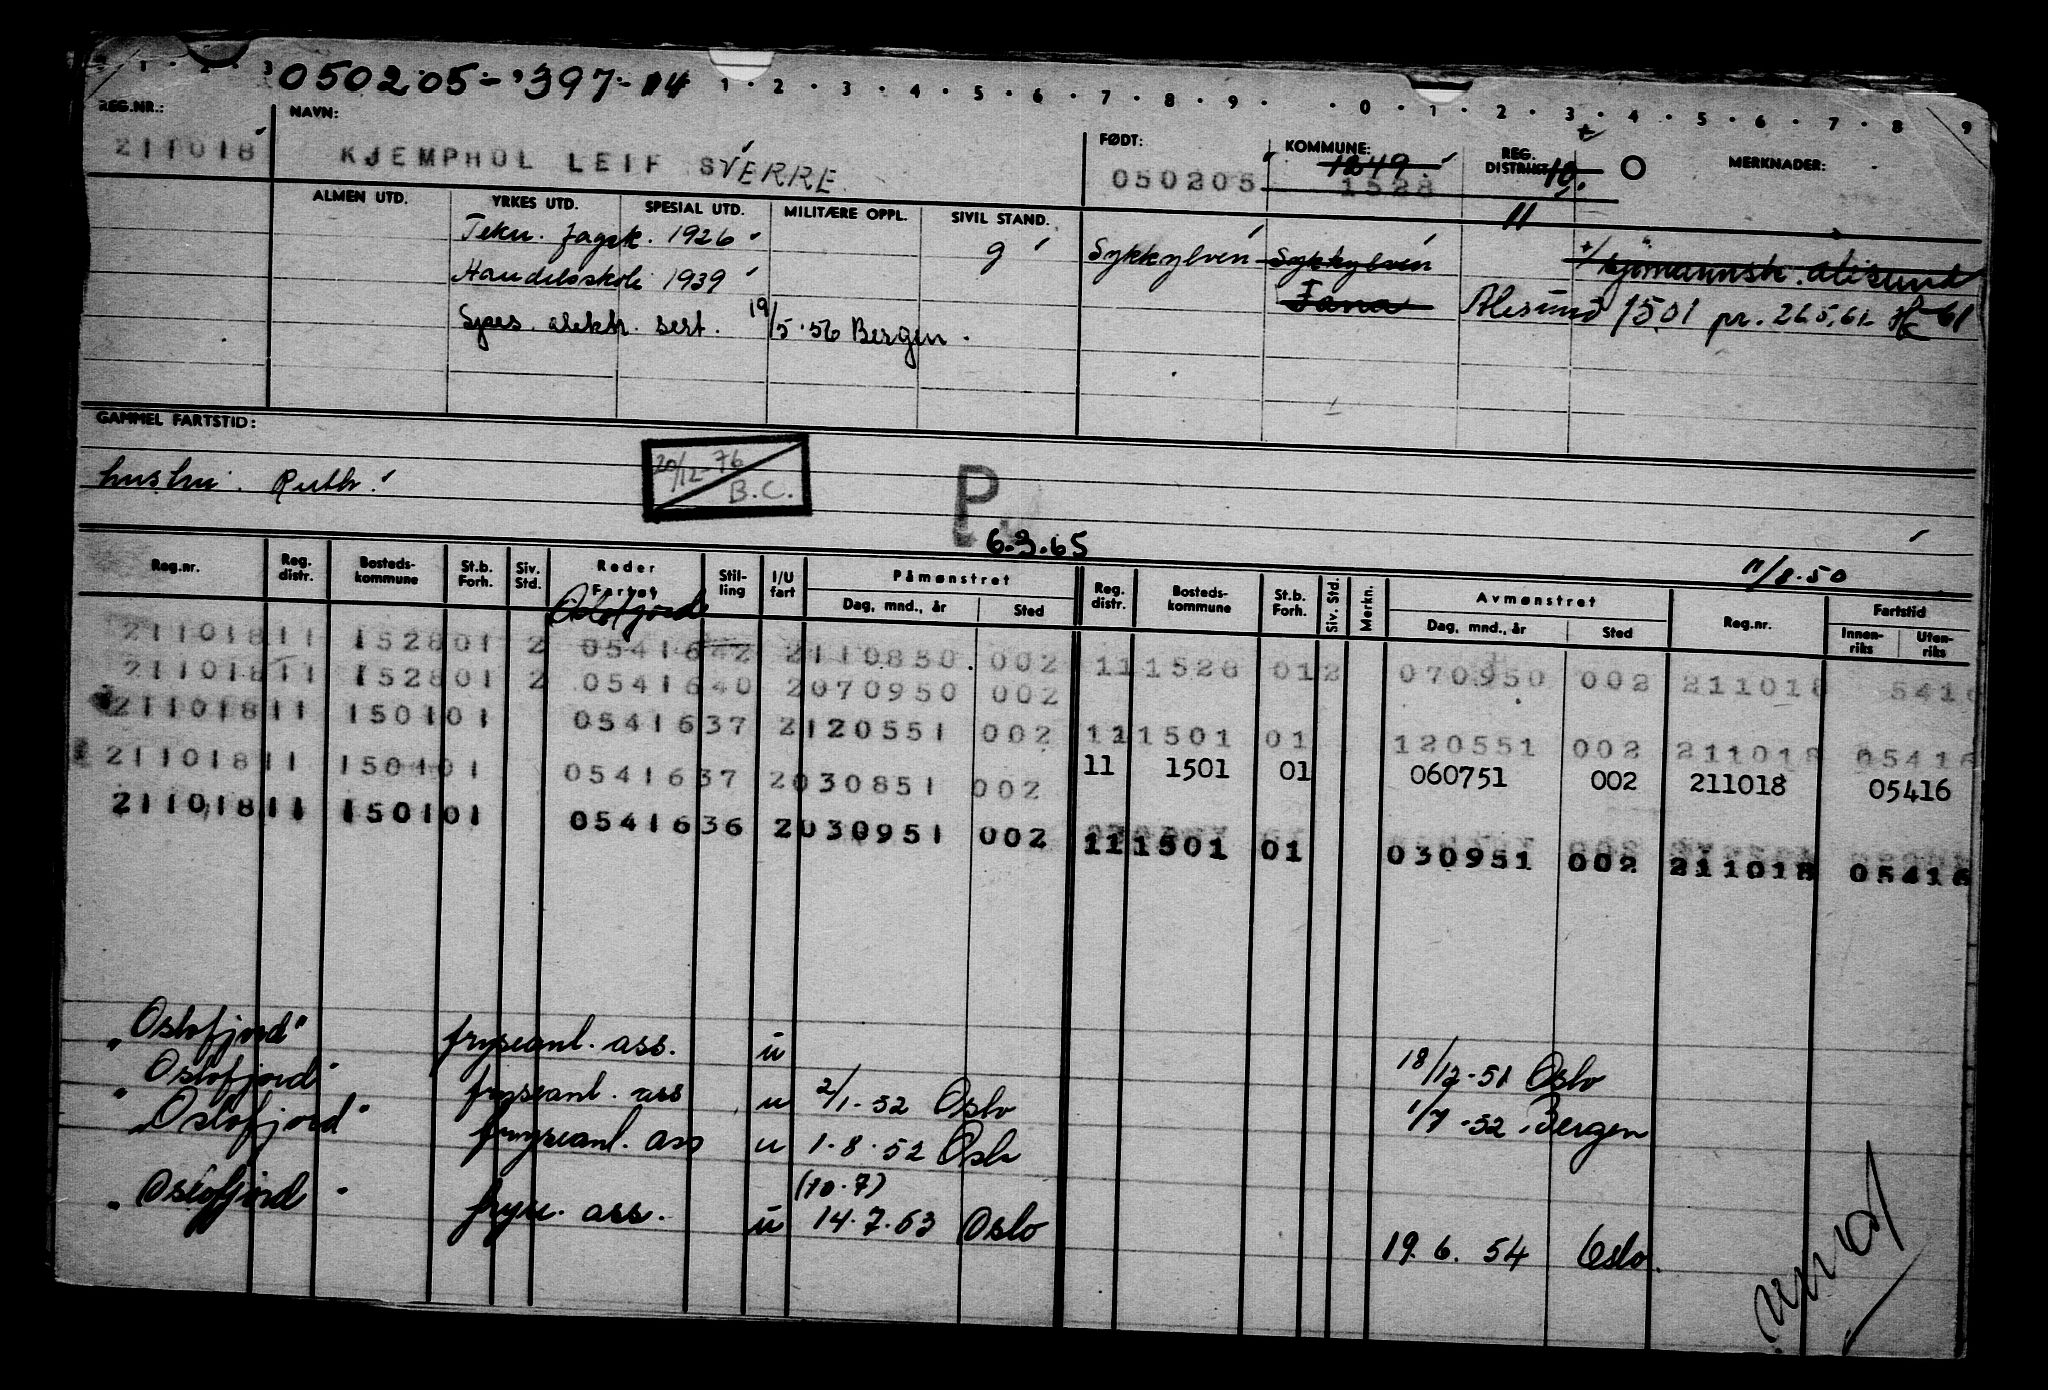 · 1 · 2 · 3 050205-397-14 1 · 2 · 3 · 4 · 5 · 6 · 7 · 8 · 9 · · 0 · 1 · 2 · 3 · 4 · 5 · 6 · 7 · 8 9
REG.NR.: NAVN: FØDT: KOMMUNE: REG. DISTRIKT: MERKNADER:
211018 KJEMPHOL LEIF SVERRE 050205 1249 1528 10. O
ALMEN UTD. YRKES UTD. SPESIAL UTD. MILITÆRE OPPL. SIVIL STAND. 11
Tekn. fagsk. 1926 g Sykkylven Sykkylven sjømannsk. Ålesund
Handelsskole 1939 Fana Ålesund 1501 pr. 26.5.61
Spes. elektr. sert. 19/5.56 Bergen.
GAMMEL FARTSTID:
hustru. Ruth. 20/12-76 B.C. P
6.3.65 11/8.50
Reg.nr. Reg. distr. Bosteds- kommune St.b. Forh. Siv. Std. Reder Fartøy Stil- ling I/U fart Påmønstret Reg. distr. Bosteds- kommune St.b. Forh. Siv. Std. Merkn. Avmønstret Reg.nr. Fartstid
Dag, mnd., år Sted Dag, mnd., år Sted Innen- riks Uten- riks
Oslofjord
211018 11 1528 01 2 05416 42 2 110850 002 11 1528 01 2 070950 002 211018 5416
211018 11 1528 01 2 05416 40 2 070950 002
211018 11 1501 01 05416 37 2 120551 002 11 1501 01 120551 002 211018 05416
211018 11 1501 01 05416 37 2 030851 002 11 1501 01 060751 002 211018 05416
211018 11 1501 01 05416 36 2 030951 002 11 1501 01 030951 002 211018 05416
"Oslofjord" fryseanl. ass. u 18/12-51 Oslo
"Oslofjord" fryseanl. ass u 2/1-52 Oslo 1/7-52 Bergen
"Oslofjord" fryseanl. ass u 1.8.52 Oslo
(10.7)
"Oslofjord" fryse. ass. u 14.7.53 Oslo 19.6.54 Oslo.